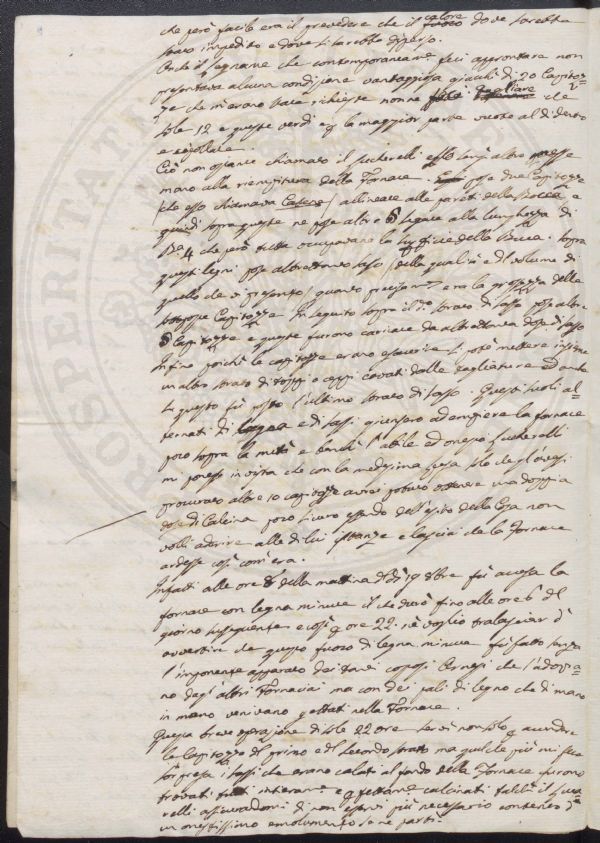 che però facile era il prevedere che il calore dove sarebbe
stato impedito e dove si sarebbe disperso.
Anche il legname che contemporaneam.e feci approntare non
presentava alcuna condizione vantaggiosa giacchè di 20 Capitoz-
ze che m'erano state richieste non ne che
sole 12 e queste verdi e p la maggior parte vuote al di dentro
e
Ciò non ostante chiamato il Succherelli esso senz'altro messe
mano alla riempitura della Fornace. pose due Capitozze
(che esso chiamava Catene) allineate alle pareti della Bocca, e
quindi sopra queste ne pose altre 8 segate alla lunghezza di
Ba 4 che però tutta occupavano la superficie della Bocca. Sopra
questi legni pose altrettanto sasso (della qualità e del volume di
quello che si presenta) quanto precisam.e era la grossezza delle
sottoposte Capitozze. In seguito sopra il do strato di sasso pose altre
8 Capitozze e queste furono caricate da altrettanta dose di sasso
Infine poichè le capitozze erano esaurite si potè mettere insieme
un altro strato di e ceppi cavati dalle tagliature ed anche
su questo fù posto l'ultimo strato di sasso. Questi suoli al-
ternati di legna e di sassi giunsero ad empiere la fornace
poco sopra la metà e benchè l'abile ed onesto Succherelli
mi ponesse in vista che con la medesima spesa solo che gl'avessi
procurato altre 10 capitozze avrei potuto ottenere una doppia
dose di Calcina poco sicuro essendo dell'esito della Cosa non
volli aderire alle di lui istanze e lasciai che la Fornace
ardesse così com'era.
Infatti alle ore 8 della mattina del dì 19 8bre fù accesa la
fornace con legna minute il che durò fino alle ore 6 del
giorno susseguente e così p ore 22. nè voglio tralasciar d'
avvertire che questo fuoco di legna minuta fù fatto senza
l'imponente apparato dei tanti copiosi Arnesi che s'adopra-
no dagl'altri Fornaciai ma con dei pali di legno che di mano
in mano venivano gettati nella Fornace.
Questa breve operazione di sole 22 ore servì non solo p accendere
le Capitozze del primo e del secondo strato ma quel che più mi fece
sorpresa i sassi che erano calati al fondo della Fornace furono
trovati tutti interam.e e p calcinati talchè il Succhе-
relli assicurandomi di non esservi più necessario contento d'
un onestissimo emolumento se ne partì.